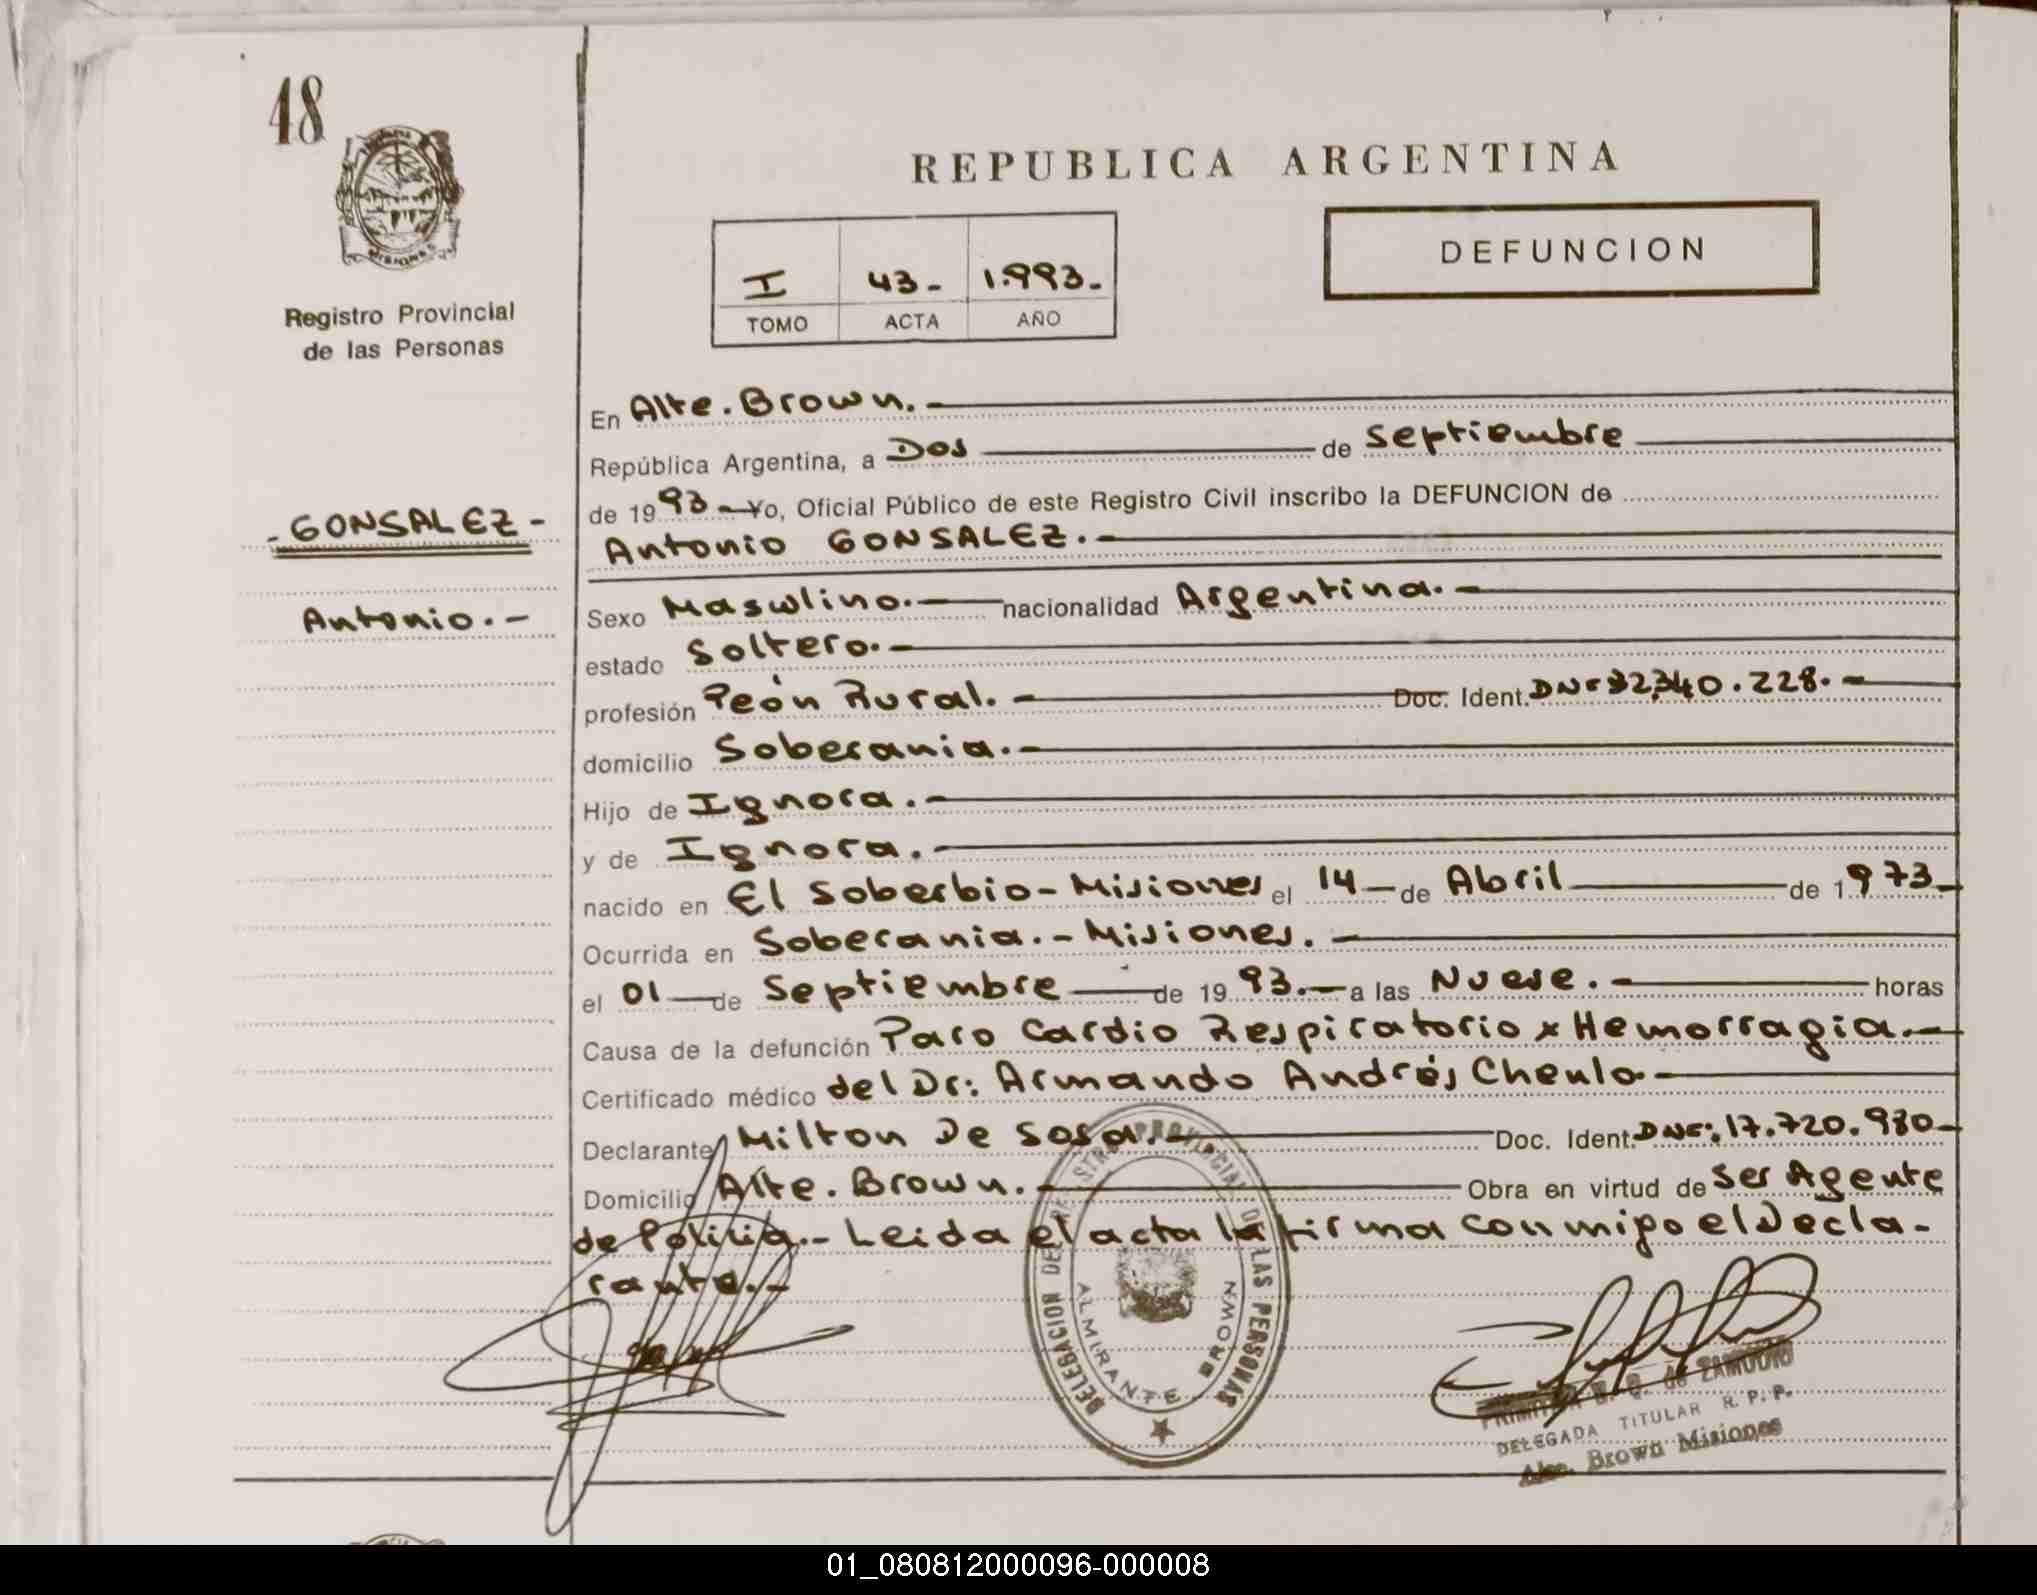 48
REPUBLICA ARGENTINA
DEFUNCION
I 43- 1.993.-
TOMO ACTA AÑO
MISIONES
Registro Provincial
de las Personas
En Alte. Brown.-
República Argentina, a Dos de Septiembre
de 1993.- Yo, Oficial Público de este Registro Civil inscribo la DEFUNCION de
- GONSALEZ -
Antonio GONSALEZ.-
Antonio.-
Sexo Masculino.- nacionalidad Argentina.-
estado Soltero.-
profesión Peón Rural.- Doc. Ident. 340.228.-
domicilio Soberania.-
Hijo de Ignora.-
y de Ignora.-
nacido en El Soberbio - Misiones el 14 - de Abril de 1973-
Ocurrida en Soberania.- Misiones.-
el 01 de Septiembre de 1993.- a las Nueve.- horas
Causa de la defunción Paro Cardio Respiratorio x Hemorragia.-
Certificado médico del Dr: Armando Andrés Chenlo.-
Declarante Milton De Sosa.- Doc. Ident. DNI: 17.720.980-
Domicilio Alte. Brown.- Obra en virtud de Ser Agente
de Policia.- Leida el acta la firma conmigo el Decla-
rante.-
DELEGACION DEL REGISTRO PROVINCIAL DE LAS PERSONAS
ALMIRANTE BROWN
de ZAMUDIO
DELEGADA TITULAR R. P. P.
Alte. Brown Misiones
01_080812000096-000008